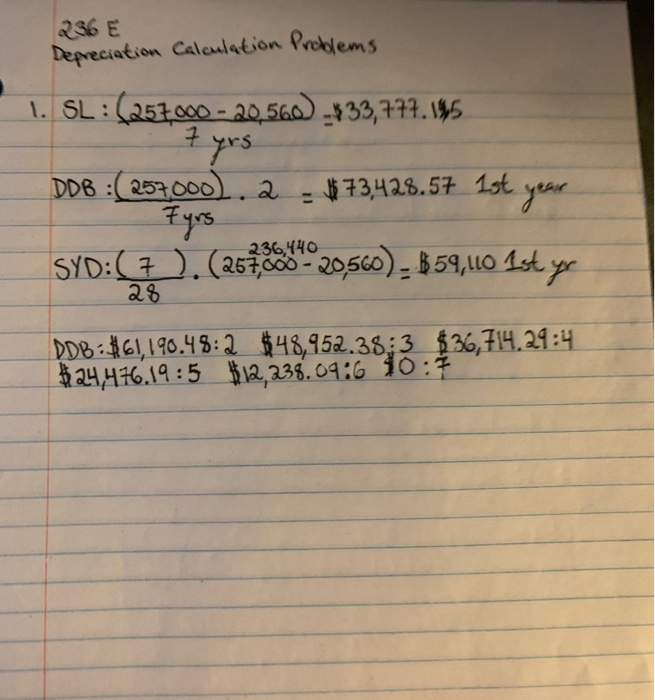 236 E
Depreciation Calculation Problems
1. SL : (257,000 - 20,560) = $33,777.15
7 yrs
DDB : (257,000) . 2 = $73,428.57 1st year
7yrs
236,440
SYD: ( 7 ) . (257,000 - 20,560) = $59,110 1st yr
28
DDB: $61,190.48:2 $48,952.38:3 $36,714.29:4
$24,476.19:5 $12,238.09:6 $0:7